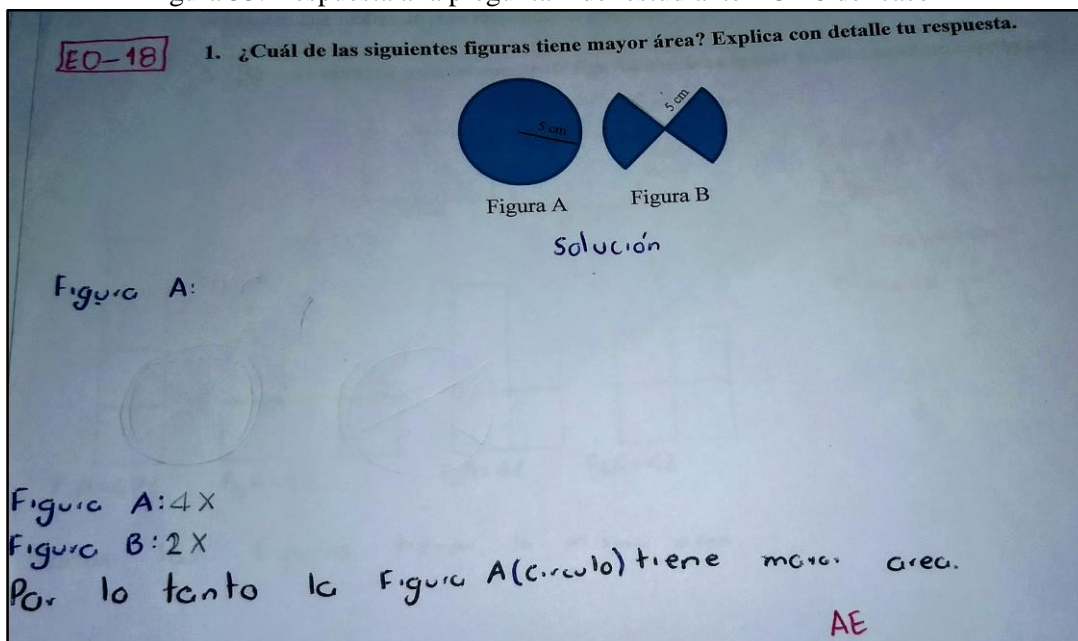 EO-18
1. ¿Cuál de las siguientes figuras tiene mayor área? Explica con detalle tu respuesta.
5 cm
5 cm
Figura A
Figura B
Solución
Figura A:
Figura A: 4X
Figura B: 2X
Por lo tanto la Figura A (circulo) tiene mayor area.
AE